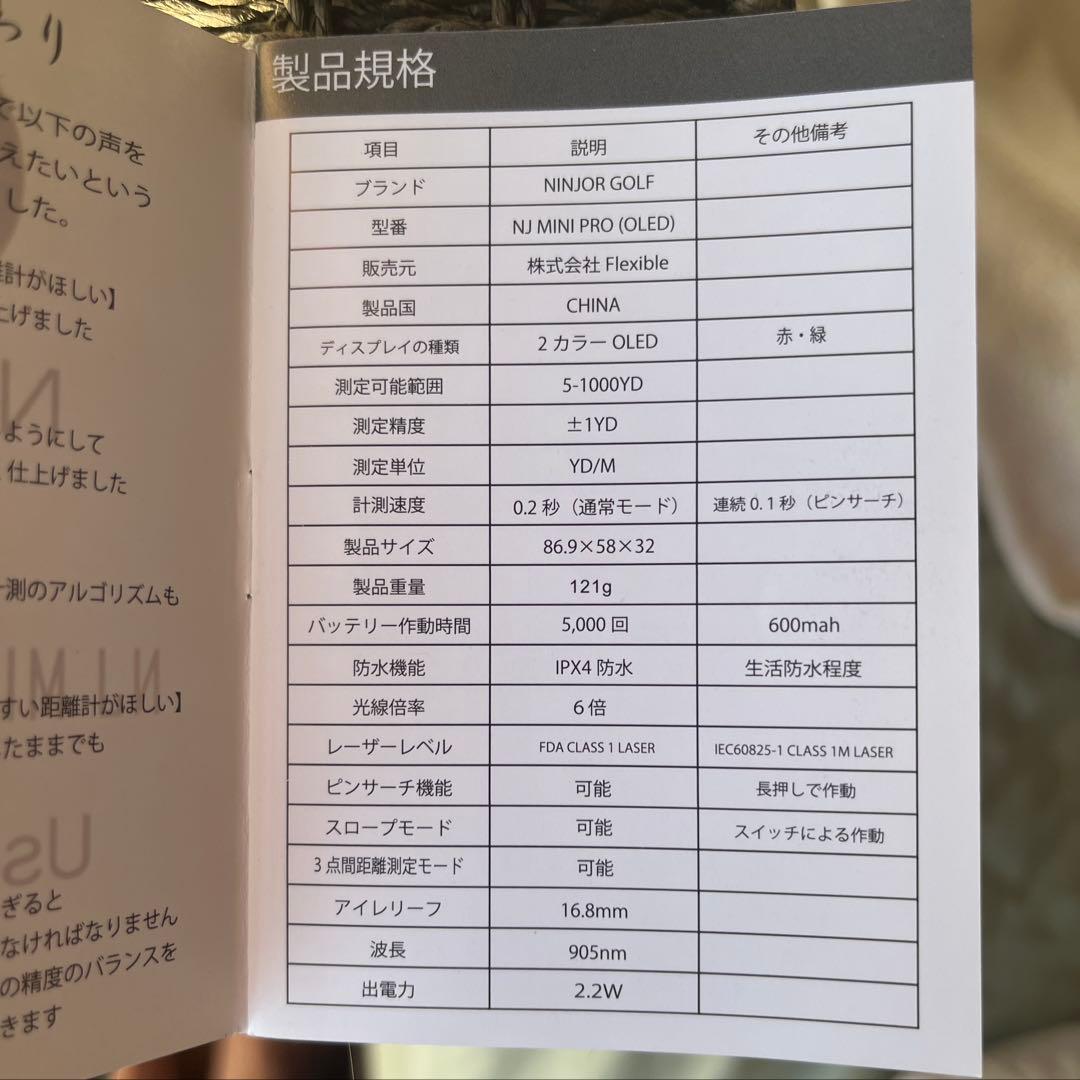 わり
で以下の声を
えたいという
した。
計がほしい】
上げました
ようにして
仕上げました
測のアルゴリズムも
すい距離計がほしい】
たままでも
ぎると
なければなりません
の精度のバランスを
きます
製品規格
項目 説明 その他備考
ブランド NINJOR GOLF
型番 NJ MINI PRO (OLED)
販売元 株式会社 Flexible
製品国 CHINA
ディスプレイの種類 2 カラー OLED 赤・緑
測定可能範囲 5-1000YD
測定精度 ±1YD
測定単位 YD/M
計測速度 0.2 秒（通常モード） 連続 0.1 秒（ピンサーチ）
製品サイズ 86.9×58×32
製品重量 121g
バッテリー作動時間 5,000 回 600mah
防水機能 IPX4 防水 生活防水程度
光線倍率 6 倍
レーザーレベル FDA CLASS 1 LASER IEC60825-1 CLASS 1M LASER
ピンサーチ機能 可能 長押しで作動
スロープモード 可能 スイッチによる作動
3 点間距離測定モード 可能
アイレリーフ 16.8mm
波長 905nm
出電力 2.2W